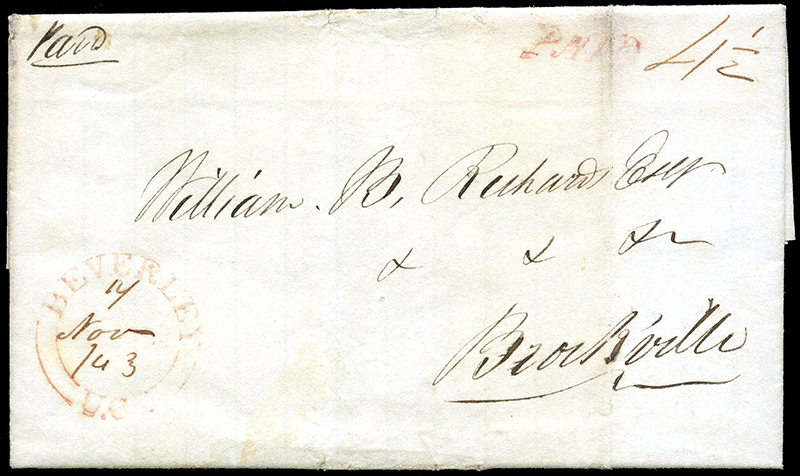 Paid
PAID
4½
William. B. Richards Esqr
& & &c
Brockville
BEVERLEY
14
Nov
143
U.C